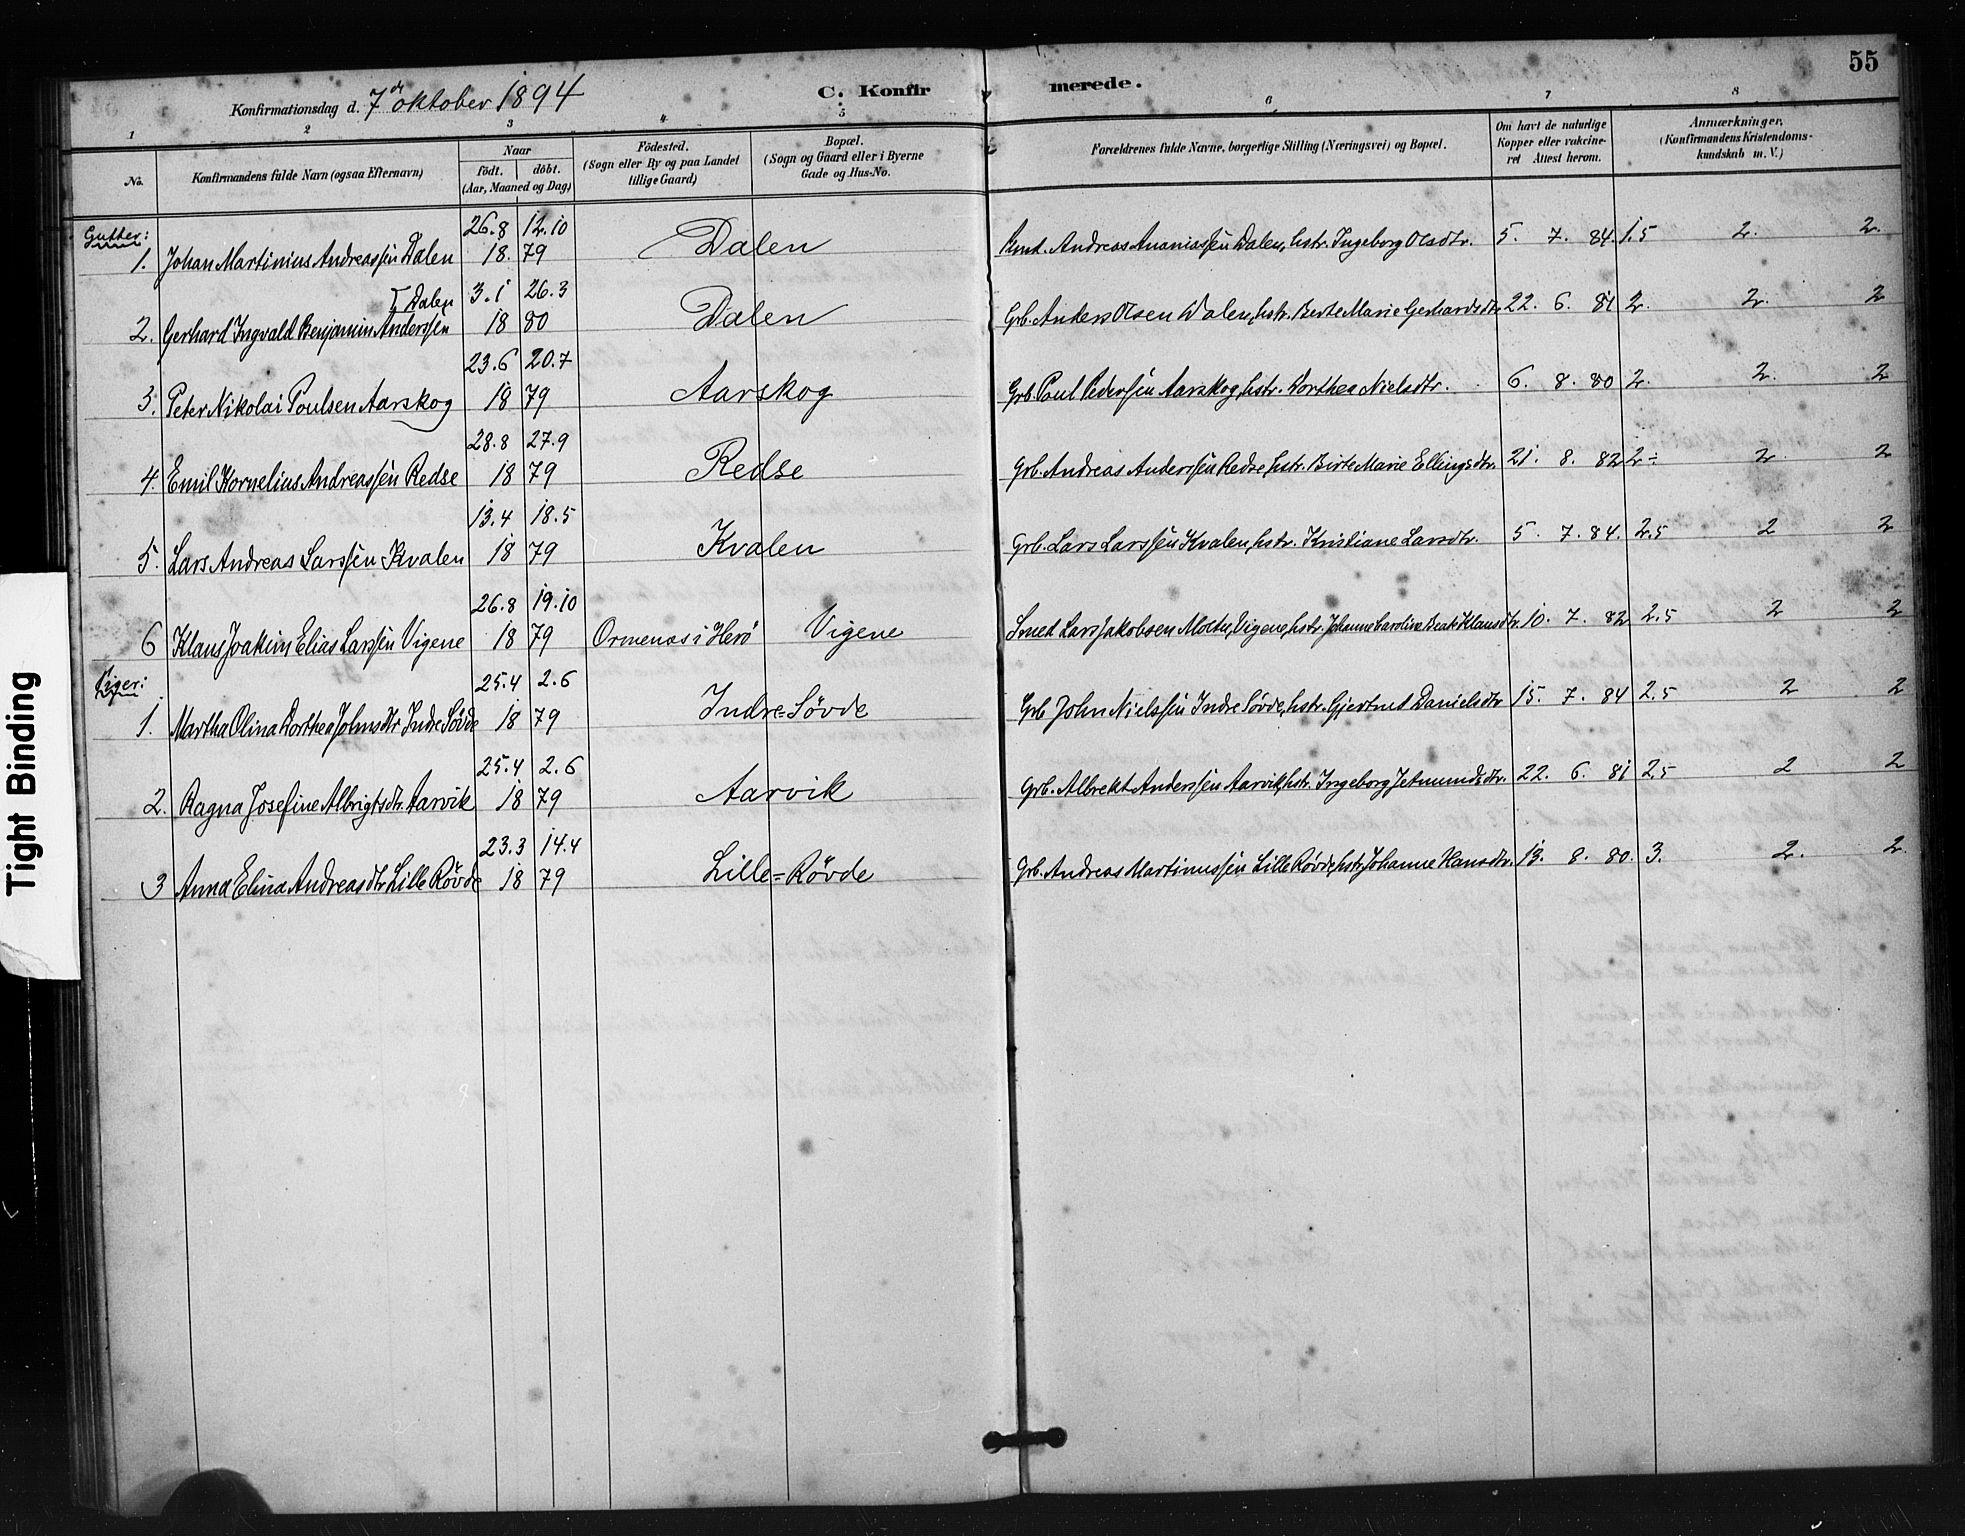 55
Konfirmationsdag d. 7de oktober 1894
C. Konfirmerede.
1 2 3 4 5 6 7 8
No.
Konfirmandens fulde Navn (ogsaa Efternavn)
Naar
födt. döbt.
(Aar, Maaned og Dag)
Födested.
(Sogn eller By og paa Landet
tillige Gaard)
Bopæl.
(Sogn og Gaard eller i Byerne
Gade og Hus-No.
Forældrenes fulde Navne, borgerlige Stilling (Næringsvei) og Bopæl.
Om havt de naturlige
Kopper eller vakcine-
ret Attest herom.
Anmærkninger,
(Konfirmandens Kristendoms-
kundskab m. V.)
Gutter:
26.8 12.10
1. Johan Martinius Andreassen Dalen 18.79 Dalen Andreas Ananiassen Dalen, hstr. Ingeborg Olsdtr. 5. 7. 84. 1.5 2. 2.
Dalen 3.1 26.3
2. Gerhard Ingvald Benjamin Anderssen 18 80 Dalen Grb. Anders Olsen Dalen, hstr. Berte Marie Gerhardsdtr 22. 6. 81 2. 2. 2
23.6 20.7
3. Peter Nikolai Poulsen Aarskog 18 79 Aarskog Grb. Poul Pedersen Aarskog, hstr. Dorthea Nielsdtr. 6. 8. 80 2. 2. 2
28.8 27.9
4. Emil Kornelius Andreassen Redse 18 79 Redse Grb. Andreas Anderssen Redse, hstr. Birte Marie Ellingsdtr. 21. 8. 82 2÷ 2. 2
13.4 18.5
5. Lars Andreas Larssen Kvalen 18 79 Kvalen Grb. Lars Larssen Kvalen, hstr. Kristiane Larsdtr. 5. 7. 84. 2.5 2 2
26.8 19.10
6 Klaus Joakim Elias Larssen Vigene 18 79 Ormenæs i Herö Vigene Smed Lars Jakobsen Moltu, Vigene, hstr. Johanne Caroline Beate Klausdtr. 10. 7. 82 2.5 2 2
Piger:
25.4 2.6
1. Martha Olina Dorthea Johnsdtr Indre Sövde 18 79 Indre=Sövde Grb John Nielssen Indre Sövde, hstr. Gjertrud Danielsdtr 15. 7. 84 2.5 2 2
25.4 2.6
2. Ragna Josefine Albrigtsdtr. Aarvik 18 79 Aarvik Grb. Albrekt Anderssen Aarvik, hstr. Ingeborg Jetmundsdtr. 22. 6. 81 2.5 2 2
23.3 14.4
3 Anna Elina Andreasdtr Lille Rövde 18 79 Lille=Rövde Grb. Andreas Martinussen Lille Rövde, hstr. Johanne Hansdtr. 13. 8. 80. 3. 2. 2
Tight Binding